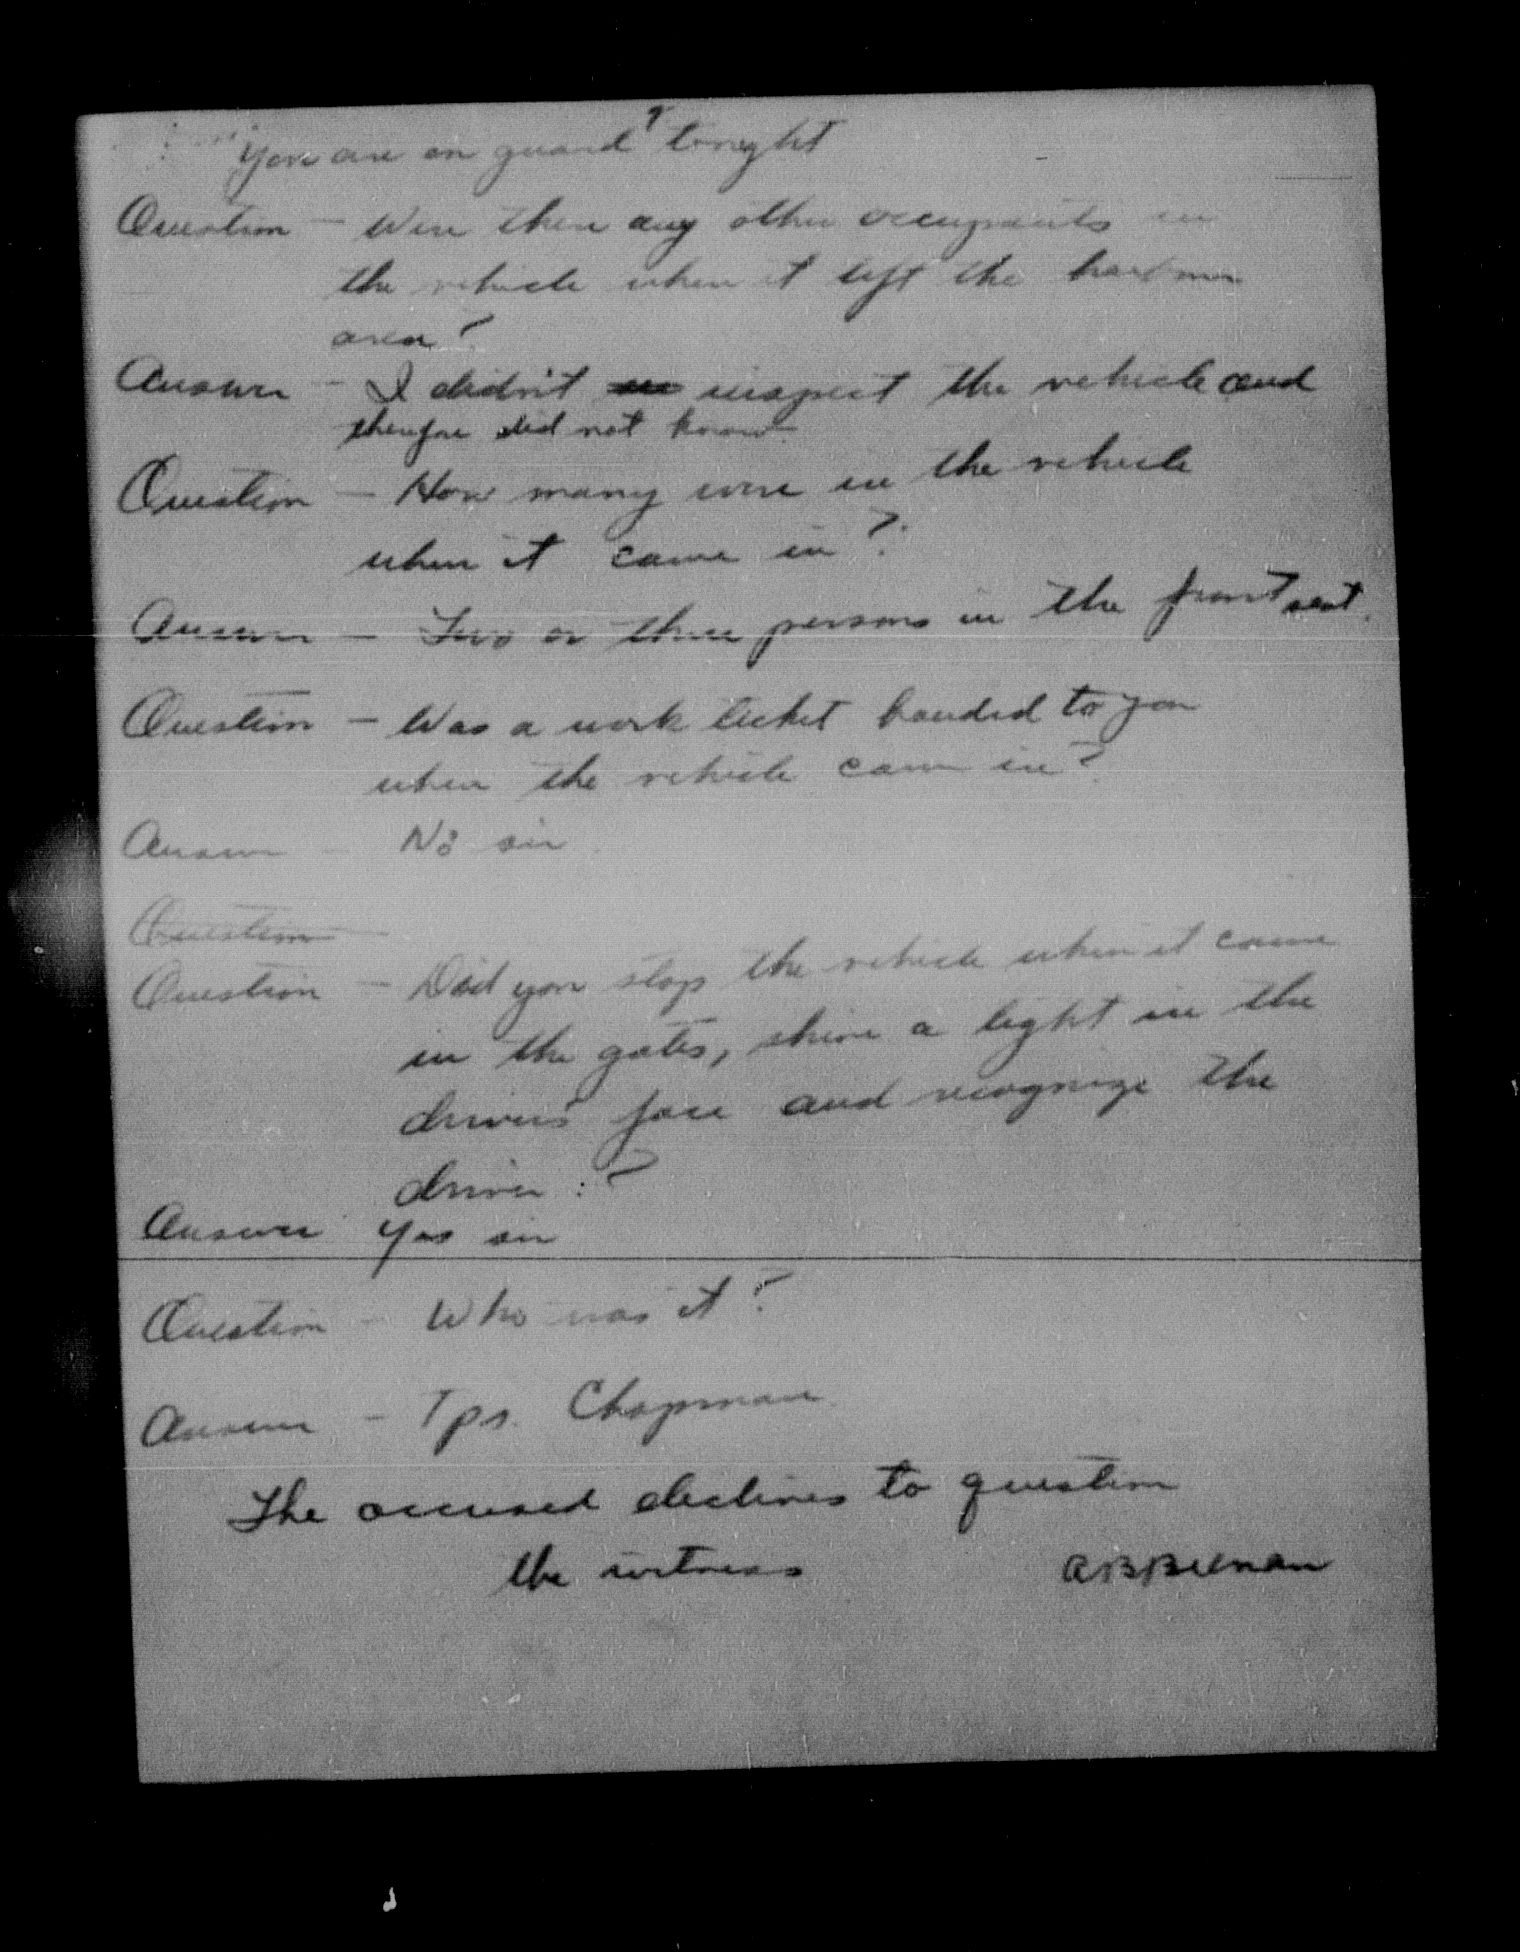 You are on guard tonight
Question - Were there any other occupants in
the vehicle when it left the harbour
area?
Answer - I didn't inspect the vehicle and
therefore did not know.
Question - How many were in the vehicle
when it came in?
Answer - Two or three persons in the front seat.
Question - Was a work ticket handed to you
when the vehicle came in?
Answer - No sir.
Question -
Question - Did you stop the vehicle when it came
in the gates, shine a light in the
drivers face and recognize the
driver:?
Answer Yes sir
Question - Who was it?
Answer - Tpr. Chapman.
The accused declines to question
the witness